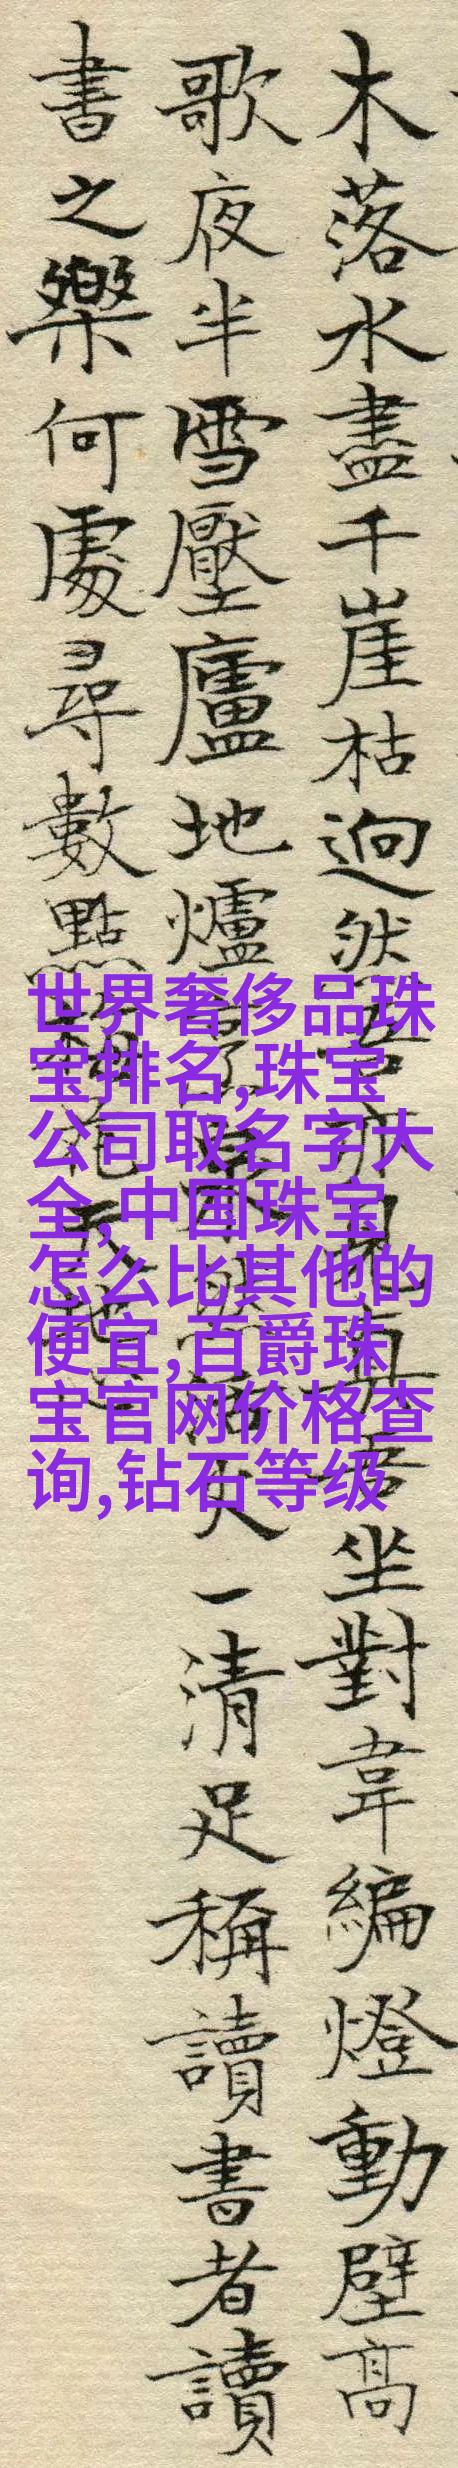 木落水盡千崖枯迥然吾亦見真吾坐對韋編燈動壁高
歌夜半雪壓廬地爐鼎活火一清足稱讀書者讀
書之樂何處尋數點梅花天地心
世界奢侈品珠
宝排名,珠宝
公司取名字大
全,中国珠宝
怎么比其他的
便宜,百爵珠
宝官网价格查
询,钻石等级